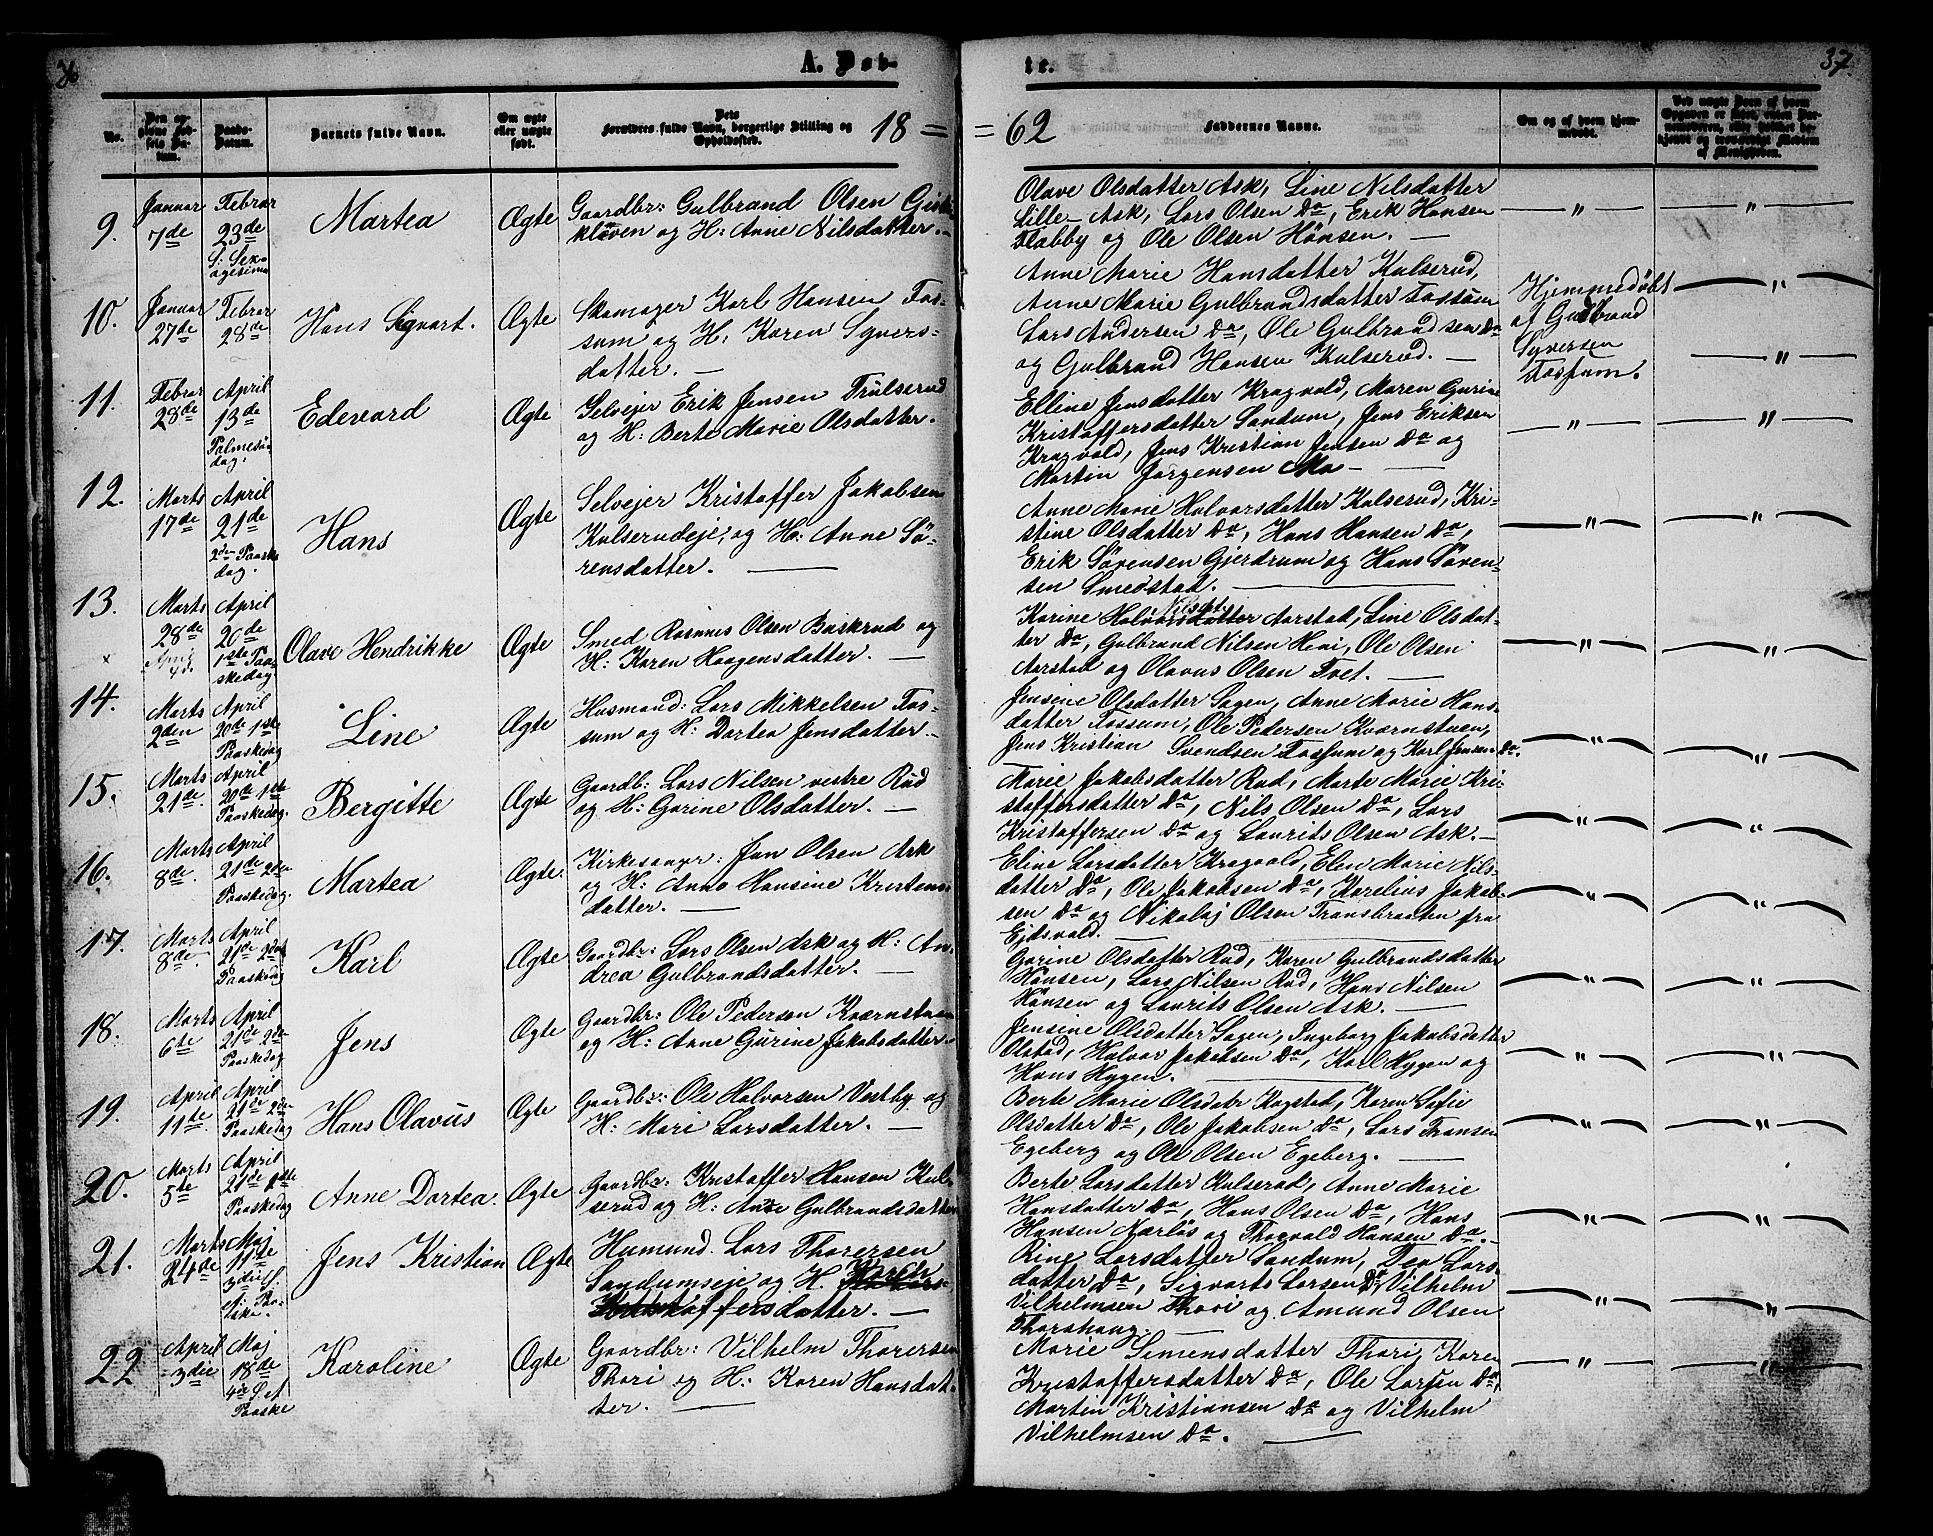 A. Døb-
te.
37.
No.
Den op-
givne Fød-
sels Da-
tum.
Daabs-
Datum.
Barnets fulde Navn.
Om ægte
eller uægte
født.
Dets
Forældres fulde Navn, borgerlige Stilling og
Opholdssted.
18 =
= 62
Faddernes Navne.
Om og af hvem hjem-
medøbt.
9.
Januar
7de
Febrar
23de
S: Sex-
agesima
Martea
Ægte
Gaardbr: Gulbrand Olsen
kleven og H: Anne Nilsdatter. —
Olave Olsdatter Ask, Line Nilsdatter
Lille-Ask, Lars Olsen Do, Erik Hansen
Flabby og Ole Olsen Hönsen. —
— " —
— " —
10.
Januar
27de
Febrar
28de
Hans Sigvart.
Ægte
Skomager Karl Hansen Fos-
sum og H: Karen Syvers-
datter. —
Anne Marie Hansdatter Kulserud,
Anne Marie Gulbrandsdatter Fossum
Lars Andersen Do, Ole Gulbrandsen Do
og Gulbrand Hansen Kulserud. —
Hjemmedøbt
af Gulbrand
Syversen
Fossum.
— " —
— " —
11.
Febrar
28de
April
13de
Palmesön-
dag.
Edevard
Ægte
Selvejer Erik Jensen Trulserud
og H: Berte Marie Olsdatter.
Elline Jensdatter Kragvold, Maren Gurine
Kristoffersdatter Sandum, Jens Eriksen
Kragvold, Jens Kristian Jensen Do og
Martin Jørgensen Mo —
— " —
— " —
12.
Marts
17de
April
21de
2den Paaske
dag.
Hans
Ægte
Selvejer Kristoffer Jakobsen
Kulserudeje, og H: Anne Sö-
rensdatter. —
Anne Marie Halvorsdatter Kulserud, Kri-
stine Olsdatter Do, Hans Hansen Do,
Erik Sörensen Gjerdrum og Hans Sören-
sen Smedstad. —
— " —
— " —
13.
Marts
28de
April
20de
1ste Paa-
skedag
Olave Hendrikke
Ægte
Smed Rasmus Olsen Buskrud og
H: Karen Haagensdatter. —
Karine Nilsdt. Aarstad, Line Olsdat-
ter Do, Gulbrand Nilsen Heni, Ole Olsen
Aarstad og Olavus Olsen Tvet. —
— " —
— " —
14.
Marts
2den
April
20de 1ste
Paaskedag
Line
Ægte
Husmand: Lars Mikkelsen Fos-
sum og H: Dortea Jensdatter. —
Jensine Olsdatter Sagen, Anne Marie Hans-
datter Fossum, Ole Pedersen Kværnstuen,
Jens Kristian Svendsen Fossum og Karl Jensen Do.
— " —
— " —
15.
Marts
21de.
April
20de 1ste
Paaskedag.
Bergitte
Ægte
Gaardb: Lars Nilsen vestre Rud
og H: Gorine Olsdatter. —
Marie Jakobsdatter Rud, Marte Marie Kri-
stoffersdatter Do, Nils Olsen Do, Lars
Kristoffersen Do og Laurits Olsen Ask. —
— " —
— " —
16.
Marts
8de.
April
21de 2den
Paaskedag.
Martea
Ægte.
Kirkesanger: Jan Olsen Ask
og H: Anne Hansine Kristens-
datter. —
Eline Larsdatter Kragvold, Elen Marie Nils-
datter Do, Ole Jakobsen Do, Karelius Jakob-
sen Do og Nikolaj Olsen Transbraaten fra
Ejdsvold. —
— " —
— " —
17.
Marts
8de.
April
21de 2den
Paaskedag
Karl
Ægte
Gaardbr: Lars Olsen Ask og H: An-
drea Gulbrandsdatter. —
Gorine Olsdatter Rud, Karen Gulbrandsdatter
Hönsen, Lars Nilsen Rud, Hans Nilsen
Hönsen og Laurits Olsen Ask. —
— " —
— " —
18.
Marts
6te
April
21de 2den
Paaskedag
Jens
Ægte
Gaardbr: Ole Pedersen Kværnstuen
og H: Anne Gurine Jakobsdatter.
Jensine Olsdatter Sagen, Ingeborg Jakobsdatter
Olstad, Halvor Jakobsen Do, Karl Hygen og
Hans Hygen. —
— " —
— " —
19.
April
11te.
April
21de 2den
Paaskedag
Hans Olavus
Ægte
Gaardbr: Ole Halvorsen Vestby og
H: Mari Larsdatter. —
Berte Marie Olsdatr Kogstad, Karen Sofie
Olsdatter Do, Ole Jakobsen Do, Lars Fransen
Egeberg og Ole Olsen Egeberg. —
— " —
— " —
20.
Marts
5te
April
21de
Paaskedag
Anne Dortea.
Ægte
Gaardbr: Kristoffer Hansen Kul-
serud og H: Anne Gulbrandsdatter
Berte Larsdatter Kulserud, Anne Marie
Hansdatter Do, Hans Olsen Do, Hans
Hansen Nærløs og Thorvald Hansen Do. —
— " —
— " —
21.
Marts
24de
Maj
11te
3die S.
ef. Paa-
ske.
Jens Kristian
Ægte
Husmand. Lars Thorersen
Sandumseje og H. Karen
Kristoffersdatter. —
Rine Larsdatter Sandum, Dea Lars-
datter Do, Sigvarts Larsen Do, Vilhelm
Vilhelmsen Thori og Amund Olsen
Thorshaug. —
— " —
— " —
22
April
3die
Maj
18de
4de S. ef
Paaske
Karoline
Ægte
Gaardbr: Vilhelm Thorersen
Thori og H: Karen Hansdat-
ter. —
Marie Simensdatter Thori, Karen
Kristoffersdatter Do, Ole Larsen Do,
Martin Kristiansen Do og Vilhelm
Vilhelmsen Do. —
— " —
— " —